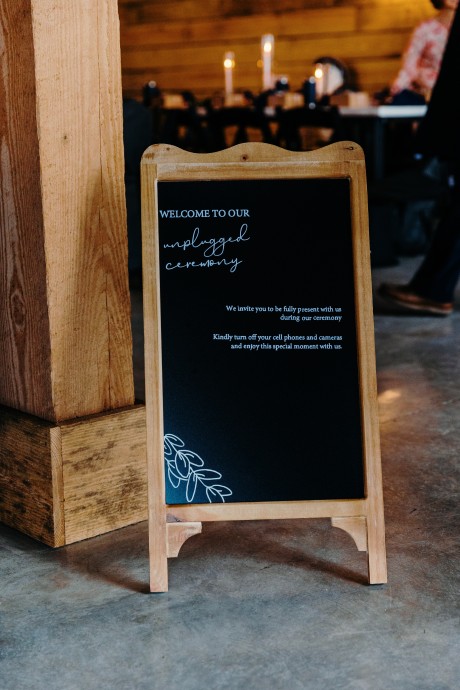 WELCOME TO OUR
unplugged
ceremony
We invite you to be fully present with us
during our ceremony
Kindly turn off your cell phones and cameras
and enjoy this special moment with us.